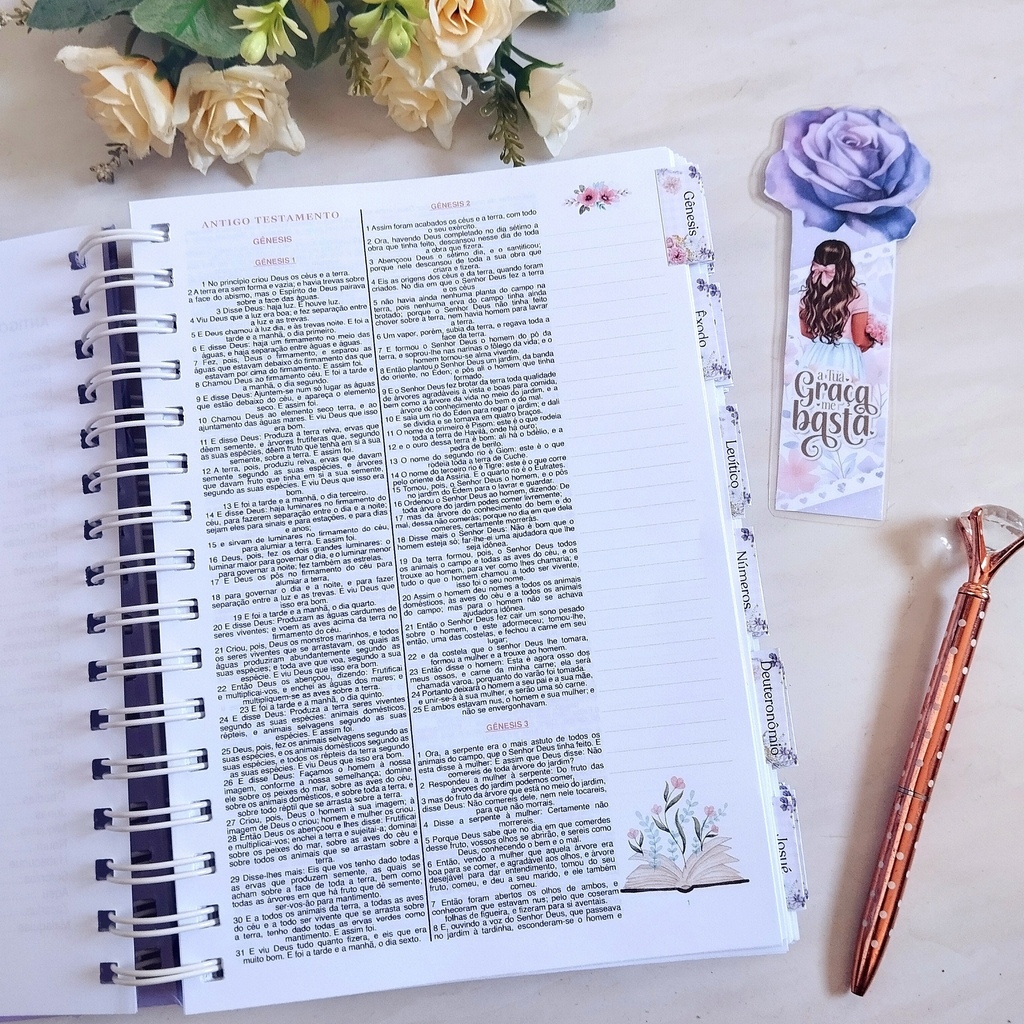 ANTIGO TESTAMENTO
GÊNESIS
GÊNESIS 1
1 No princípio criou Deus os céus e a terra.
2 A terra era sem forma e vazia; e havia trevas sobre
a face do abismo, mas o Espírito de Deus pairava
sobre a face das águas.
3 Disse Deus: haja luz. E houve luz.
4 Viu Deus que a luz era boa; e fez separação entre
a luz e as trevas.
5 E Deus chamou à luz dia, e às trevas noite. E foi a
tarde e a manhã, o dia primeiro.
6 E disse Deus: haja um firmamento no meio das
águas, e haja separação entre águas e águas.
7 Fez, pois, Deus o firmamento, e separou as
águas que estavam debaixo do firmamento das que
estavam por cima do firmamento. E assim foi.
8 Chamou Deus ao firmamento céu. E foi a tarde e
a manhã, o dia segundo.
9 E disse Deus: Ajuntem-se num só lugar as águas
que estão debaixo do céu, e apareça o elemento
seco. E assim foi.
10 Chamou Deus ao elemento seco terra, e ao
ajuntamento das águas mares. E viu Deus que isso
era bom.
11 E disse Deus: Produza a terra relva, ervas que
dêem semente, e árvores frutíferas que, segundo
as suas espécies, dêem fruto que tenha em si a sua
semente, sobre a terra. E assim foi.
12 A terra, pois, produziu relva, ervas que davam
semente segundo as suas espécies, e árvores
que davam fruto que tinha em si a sua semente,
segundo as suas espécies. E viu Deus que isso era
bom.
13 E foi a tarde e a manhã, o dia terceiro.
14 E disse Deus: haja luminares no firmamento do
céu, para fazerem separação entre o dia e a noite;
sejam eles para sinais e para estações, e para dias
e anos;
15 e sirvam de luminares no firmamento do céu,
para alumiar a terra. E assim foi.
16 Deus, pois, fez os dois grandes luminares: o
luminar maior para governar o dia, e o luminar menor
para governar a noite; fez também as estrelas.
17 E Deus os pôs no firmamento do céu para
alumiar a terra,
18 para governar o dia e a noite, e para fazer
separação entre a luz e as trevas. E viu Deus que
isso era bom.
19 E foi a tarde e a manhã, o dia quarto.
20 E disse Deus: Produzam as águas cardumes de
seres viventes; e voem as aves acima da terra no
firmamento do céu.
21 Criou, pois, Deus os monstros marinhos, e todos
os seres viventes que se arrastavam, os quais as
águas produziram abundantemente segundo as
suas espécies; e toda ave que voa, segundo a sua
espécie. E viu Deus que isso era bom.
22 Então Deus os abençoou, dizendo: Frutificai
e multiplicai-vos, e enchei as águas dos mares; e
multipliquem-se as aves sobre a terra.
23 E foi a tarde e a manhã, o dia quinto.
24 E disse Deus: Produza a terra seres viventes
segundo as suas espécies: animais domésticos,
répteis, e animais selvagens segundo as suas
espécies. E assim foi.
25 Deus, pois, fez os animais selvagens segundo as
suas espécies, e os animais domésticos segundo as
suas espécies, e todos os répteis da terra segundo
as suas espécies. E viu Deus que isso era bom.
26 E disse Deus: Façamos o homem à nossa
imagem, conforme a nossa semelhança; domine
ele sobre os peixes do mar, sobre as aves do céu,
sobre os animais domésticos, e sobre toda a terra, e
sobre todo réptil que se arrasta sobre a terra.
27 Criou, pois, Deus o homem à sua imagem; à
imagem de Deus o criou; homem e mulher os criou.
28 Então Deus os abençoou e lhes disse: Frutificai
e multiplicai-vos; enchei a terra e sujeitai-a; dominai
sobre os peixes do mar, sobre as aves do céu e
sobre todos os animais que se arrastam sobre a
terra.
29 Disse-lhes mais: Eis que vos tenho dado todas
as ervas que produzem semente, as quais se
acham sobre a face de toda a terra, bem como
todas as árvores em que há fruto que dê semente;
ser-vos-ão para mantimento.
30 E a todos os animais da terra, a todas as aves
do céu e a todo ser vivente que se arrasta sobre
a terra, tenho dado todas as ervas verdes como
mantimento. E assim foi.
31 E viu Deus tudo quanto fizera, e eis que era
muito bom. E foi a tarde e a manhã, o dia sexto.
GÊNESIS 2
1 Assim foram acabados os céus e a terra, com todo
o seu exército.
2 Ora, havendo Deus completado no dia sétimo a
obra que tinha feito, descansou nesse dia de toda
a obra que fizera.
3 Abençoou Deus o sétimo dia, e o santificou;
porque nele descansou de toda a sua obra que
criara e fizera.
4 Eis as origens dos céus e da terra, quando foram
criados. No dia em que o Senhor Deus fez a terra
e os céus
5 não havia ainda nenhuma planta do campo na
terra, pois nenhuma erva do campo tinha ainda
brotado; porque o Senhor Deus não tinha feito
chover sobre a terra, nem havia homem para lavrar
a terra.
6 Um vapor, porém, subia da terra, e regava toda a
face da terra.
7 E formou o Senhor Deus o homem do pó da
terra, e soprou-lhe nas narinas o fôlego da vida; e o
homem tornou-se alma vivente.
8 Então plantou o Senhor Deus um jardim, da banda
do oriente, no Éden; e pôs ali o homem que tinha
formado.
9 E o Senhor Deus fez brotar da terra toda qualidade
de árvores agradáveis à vista e boas para comida,
bem como a árvore da vida no meio do jardim, e a
árvore do conhecimento do bem e do mal.
10 E saía um rio do Éden para regar o jardim; e dali
se dividia e se tornava em quatro braços.
11 O nome do primeiro é Pisom: este é o que rodeia
toda a terra de Havilá, onde há ouro;
12 e o ouro dessa terra é bom: ali há o bdélio, e a
pedra de berilo.
13 O nome do segundo rio é Giom: este é o que
rodeia toda a terra de Cuche.
14 O nome do terceiro rio é Tigre: este é o que corre
pelo oriente da Assíria. E o quarto rio é o Eufrates.
15 Tomou, pois, o Senhor Deus o homem, e o pôs
no jardim do Éden para o lavrar e guardar.
16 Ordenou o Senhor Deus ao homem, dizendo: De
toda árvore do jardim podes comer livremente;
17 mas da árvore do conhecimento do bem e do
mal, dessa não comerás; porque no dia em que dela
comeres, certamente morrerás.
18 Disse mais o Senhor Deus: Não é bom que o
homem esteja só; far-lhe-ei uma ajudadora que lhe
seja idônea.
19 Da terra formou, pois, o Senhor Deus todos
os animais o campo e todas as aves do céu, e os
trouxe ao homem, para ver como lhes chamaria; e
tudo o que o homem chamou a todo ser vivente,
isso foi o seu nome.
20 Assim o homem deu nomes a todos os animais
domésticos, às aves do céu e a todos os animais
do campo; mas para o homem não se achava
ajudadora idônea.
21 Então o Senhor Deus fez cair um sono pesado
sobre o homem, e este adormeceu; tomou-lhe,
então, uma das costelas, e fechou a carne em seu
lugar;
22 e da costela que o senhor Deus lhe tomara,
formou a mulher e a trouxe ao homem.
23 Então disse o homem: Esta é agora osso dos
meus ossos, e carne da minha carne; ela será
chamada varoa, porquanto do varão foi tomada.
24 Portanto deixará o homem a seu pai e a sua mãe,
e unir-se-á à sua mulher, e serão uma só carne.
25 E ambos estavam nus, o homem e sua mulher; e
não se envergonhavam.
GÊNESIS 3
1 Ora, a serpente era o mais astuto de todos os
animais do campo, que o Senhor Deus tinha feito. E
esta disse à mulher: É assim que Deus disse: Não
comereis de toda árvore do jardim?
2 Respondeu a mulher à serpente: Do fruto das
árvores do jardim podemos comer,
3 mas do fruto da árvore que está no meio do jardim,
disse Deus: Não comereis dele, nem nele tocareis,
para que não morrais.
4 Disse a serpente à mulher: Certamente não
morrereis.
5 Porque Deus sabe que no dia em que comerdes
desse fruto, vossos olhos se abrirão, e sereis como
Deus, conhecendo o bem e o mal.
6 Então, vendo a mulher que aquela árvore era
boa para se comer, e agradável aos olhos, e árvore
desejável para dar entendimento, tomou do seu
fruto, comeu, e deu a seu marido, e ele também
comeu.
7 Então foram abertos os olhos de ambos, e
conheceram que estavam nus; pelo que coseram
folhas de figueira, e fizeram para si aventais.
8 E, ouvindo a voz do Senhor Deus, que passeava
no jardim à tardinha, esconderam-se o homem e
Gênesis
Êxodo
Levítico
Números
Deuteronômio
Josué
a tua
Graça
me
basta